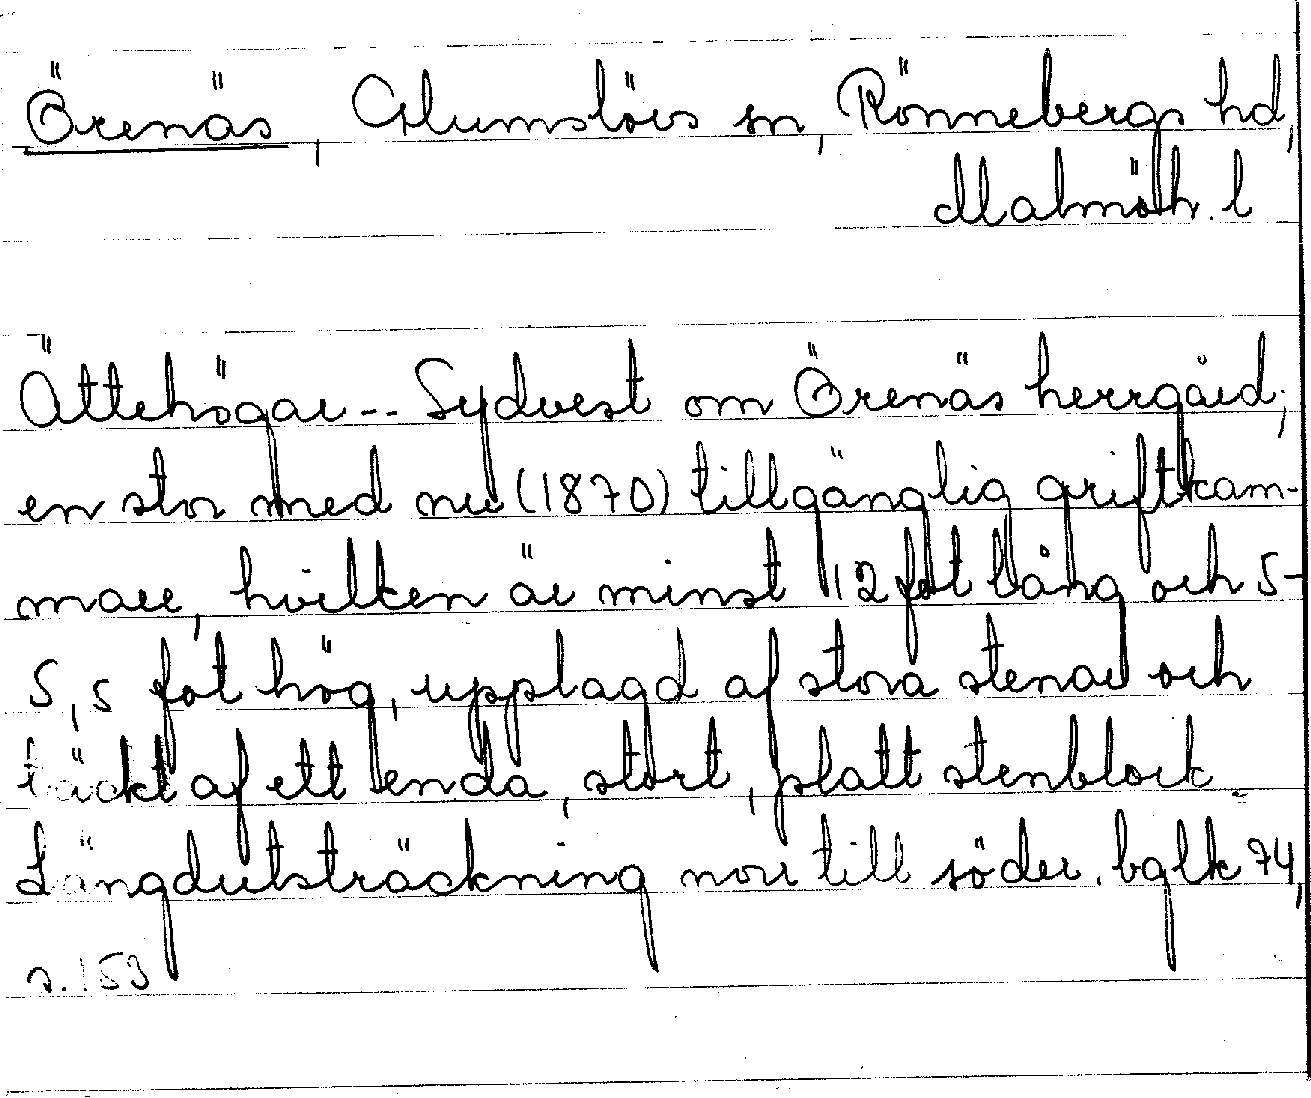 Örenäs, Glumslövs sn, Rönnebergs hd,
Malmöh. l
Ättehögar -- Sydvest om Örenäs herrgård;
en stor med nu (1870) tillgänglig griftkam-
mare, hvilken är minst 12 fot lång och 5-
5,5 fot hög, upplagd af stora stenar och
täckt af ett enda, stort, platt stenblock.
Längdutsträckning norr till söder. bglk 74,
s. 153